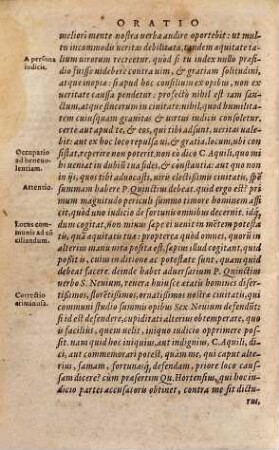 ORATIO
meliori mente nostra uerba audire oportebit: ut mul
A persona
iudicis.
tu incommodis ueritas debilitata, tandem æquitate ta
lium uirorum recreetur. quod si tu index nullo præsi
dio fuisse uidebere contra uim, & gratiam solitudini,
atque inopiæ: si apud hoc consilium ex opibus, non ex ueri
tate causa pendetur: profecto nihil est iam sanctum,
atque sincerum in ciuitate: nihil, quod humilita
tem cuiusquam grauitas & uirtus iudicis consoletur,
certe aut apud te, & eos, qui tibi adsunt, ueritas uale
bit: aut ex hoc loco repulsa ui, & gratia, locum, ubi con
Occupatio
ad beneuo-
lentiam.
sistat, reperire non poterit. non eo dico C. Aquili, quo mi
hi ueniat in dubiũ tua fides, & constantia: aut quo non
in ijs, quos tibi aduocasti, uiris electissimis ciuitatis, spẽ
Attentio.
summam habere P. Quinctius debeat. quid ergo est? pri
mum magnitudo periculi summo timore hominem affi
cit: quod uno iudicio de fortunis omnibus decernit. idq́;
Locus com-
munis ad cõ
ciliandum.
dum cogitat, non minus sæpe ei uenit in mentem potesta
tis, quam æquitatis tuæ: propterea quod omnes, quorum in
alterius manu uita posita est, sæpius illud cogitant, quid
possit is, cuius in ditione ac potestate sunt, quam quid
debeat facere. deinde habet aduersarium P. Quinctius
uerbo S. Neuium, reuera huiusce ætatis homines diser-
Correctio
criminosa.
tissimos, floretissimos, ornatissimos nostræ ciuitatis, qui
communi studio summis opibus Sex Neuium defendũt:
si id est defendere, cupiditati alterius obtemperare, quo
is facilius, quem uelit, iniquo iudicio opprimere pos-
sit. nam quid hoc iniquius, aut indignius, C. Aquili, di
ci, aut commemorari potest, quàm me, qui caput alte-
rius, famam, fortunasq́;, defendam, priore loco cau-
sam dicere? cùm præsertim Qu. Hortensius, qui hoc iu-
dicio partes accusatoris obtinet, contra me sit dictu-
rus,